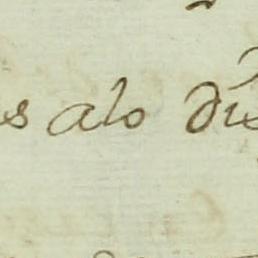 s alo dis